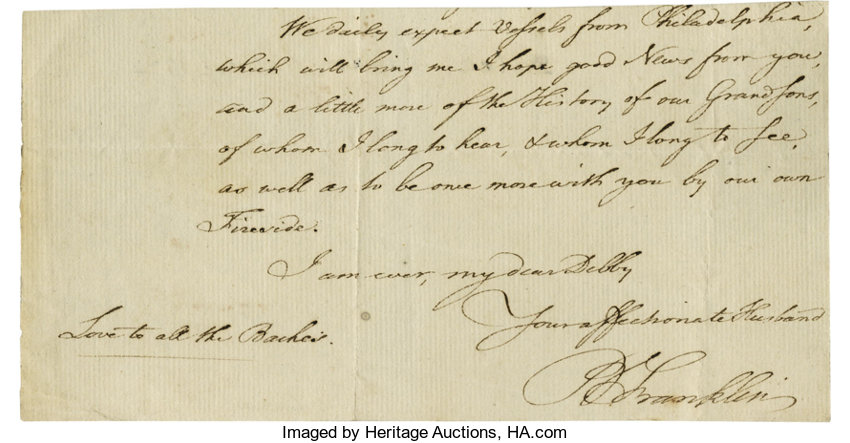 We daily expect Vessels from Philadelphia,
which will bring me I hope good News from you,
and a little more of the History of our Grandsons,
of whom I long to hear, & whom I long to see,
as well as to be once more with you by our own
Fireside.
I am ever, my dear Debby
Your affectionate Husband
Love to all the Baches.
B Franklin
Imaged by Heritage Auctions, HA.com